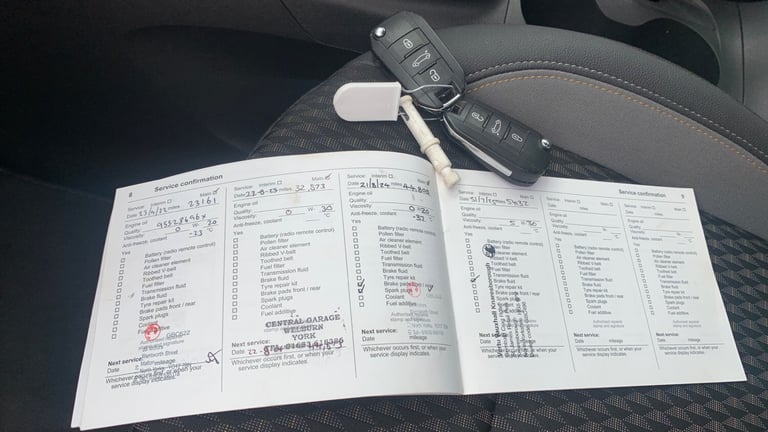 8
Service confirmation
Service: Interim Main
Date 23/9/22 miles 23161
Engine oil
Quality:
Viscosity: 0 W 20
Anti-freeze, coolant -33 °C
Yes
Battery (radio remote control)
Pollen filter
Air cleaner element
Ribbed V-belt
Toothed belt
Fuel filter
Transmission fluid
Brake fluid
Tyre repair kit
Brake pads front / rear
Spark plugs
Coolant
Fuel additive
Next service:
Date mileage
Whichever occurs first, or when your
service display indicates.
Service: Interim Main
Date 22-8-23 miles 32,573
Engine oil
Quality:
Viscosity: 0 W 30
Anti-freeze, coolant °C
Yes
Battery (radio remote control)
Pollen filter
Air cleaner element
Ribbed V-belt
Toothed belt
Fuel filter
Transmission fluid
Brake fluid
Tyre repair kit
Brake pads front / rear
Spark plugs
Coolant
Fuel additive
CENTRAL GARAGE
WELBURN
YORK
Next service:
Date 22-8-24
Whichever occurs first, or when your
service display indicates.
Service: Interim Main
Date 21/8/24 miles
Engine oil
Quality:
Viscosity: 0 W 20
Anti-freeze, coolant °C
Yes
Battery (radio remote control)
Pollen filter
Air cleaner element
Ribbed V-belt
Toothed belt
Fuel filter
Transmission fluid
Brake fluid
Tyre repair kit
Brake pads front / rear
Spark plugs
Coolant
Fuel additive
Next service:
Date mileage
Whichever occurs first, or when your
service display indicates.
Service confirmation 9
Service: Interim Main
Engine oil
Quality:
Viscosity: 5 W 30
Anti-freeze, coolant °C
Yes
Battery (radio remote control)
Pollen filter
Air cleaner element
Ribbed V-belt
Toothed belt
Fuel filter
Transmission fluid
Brake fluid
Tyre repair kit
Brake pads front / rear
Spark plugs
Coolant
Fuel additive
Next service:
Date mileage
Whichever occurs first, or when your
service display indicates.
Service: Interim Main
Date miles
Engine oil
Quality:
Viscosity: W
Anti-freeze, coolant °C
Yes
Battery (radio remote control)
Pollen filter
Air cleaner element
Ribbed V-belt
Toothed belt
Fuel filter
Transmission fluid
Brake fluid
Tyre repair kit
Brake pads front / rear
Spark plugs
Coolant
Fuel additive
Authorised repairer
stamp and signature
Next service:
Date mileage
Whichever occurs first, or when your
service display indicates.
Service: Interim Main
Date miles
Engine oil
Quality:
Viscosity: W
Anti-freeze, coolant °C
Yes
Battery (radio remote control)
Pollen filter
Air cleaner element
Ribbed V-belt
Toothed belt
Fuel filter
Transmission fluid
Brake fluid
Tyre repair kit
Brake pads front / rear
Spark plugs
Coolant
Fuel additive
Authorised repairer
stamp and signature
Next service:
Date mileage
Whichever occurs first, or when your
service display indicates.